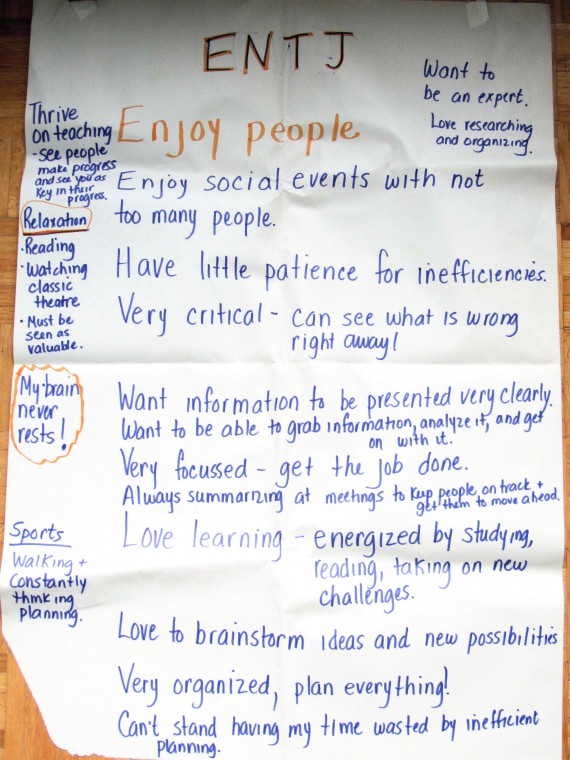 ENTJ
Want to
be an expert.
Love researching
and organizing.
Thrive
on teaching
- see people
make progress
and see you as
key in their
progress.
Relaxation
· Reading
· Watching
classic
theatre
· Must be
seen as
valuable.
My brain
never
rests!
Sports
Walking +
Constantly
thinking
planning.
Enjoy people
Enjoy social events with not
too many people.
Have little patience for inefficiencies.
Very critical - can see what is wrong
right away!
Want information to be presented very clearly.
Want to be able to grab information, analyze it, and get
on with it.
Very focussed - get the job done.
Always summarizing at meetings to keep people on track +
get them to move ahead.
Love learning - energized by studying,
reading, taking on new
challenges.
Love to brainstorm ideas and new possibilities
Very organized, plan everything!
Can't stand having my time wasted by inefficient
planning.